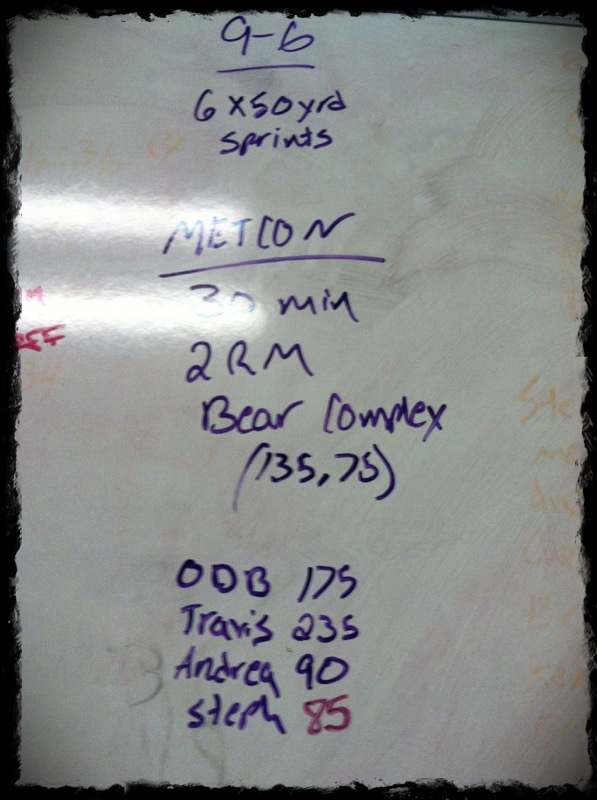 9-6
6x50yrd
sprints
METCON
30 min
2RM
Bear Complex
(135,75)
ODB 175
Travis 235
Andrea 90
steph 85